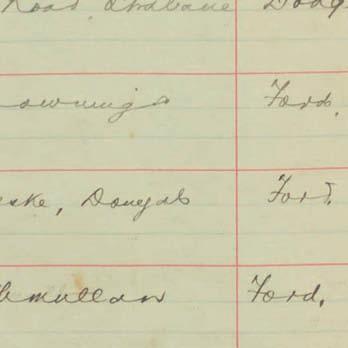 Road, Brisbane Dodge
ownings Ford.
eske, Dougal Ford.
mullan Ford.